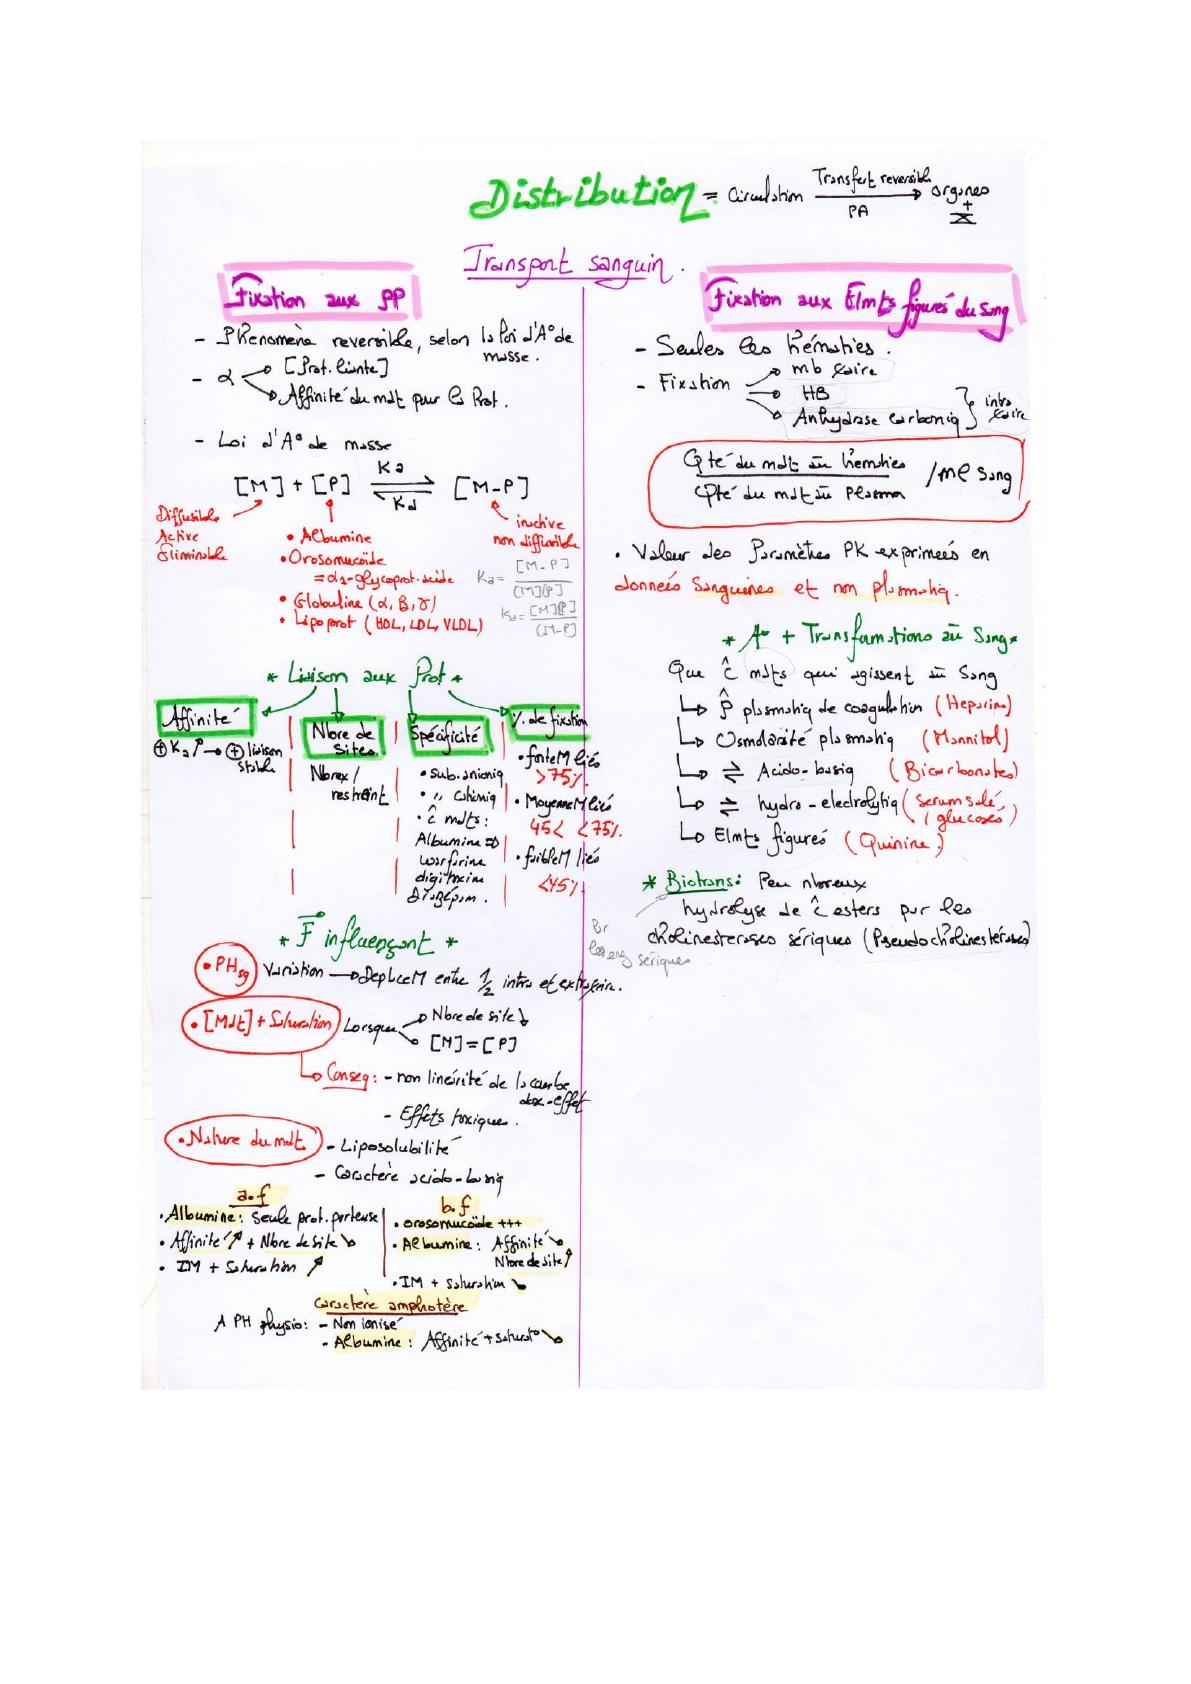 Distribution = Circulation Transfert reversible PA organes + X
Transport sanguin.
Fixation aux PP
- Phenomène reversible, selon la loi d'A° de masse.
- α [Prot. liante]
Affinité du mdt pour la Prot.
- Loi d'A° de masse
[M] + [P] Ka Kd [M-P]
Diffusible
Active
Eliminable
inactive
non diffusible
• Albumine
• Orosomucoïde
= α1-glycoprot. acide
• Globuline (α, β, γ)
• Lipoprot (HDL, LDL, VLDL)
Ka = [M-P] / [M][P]
Kd = [M][P] / (M-P)
* Liaison aux Prot *
Affinité
⊕ Ka ↗ → ⊕ liaison stable
Nbre de Sites
Nbrex /
restreint
Spécificité
• sub. anioniq
• " cationiq
• ĉ mdts :
Albumine ⇒
warfarine
digitoxine
Diazépam.
% de fixation
• forteM liés
>75%.
• MoyenneM liés
45< <75%.
• faibleM liés
<45%
* F influençant *
• PH sg Variation → DéplaceM entre 1/2 intra et extra
• [Mdt] + Saturation Lorsque Nbre de site ↓
[M] = [P]
Conseq : - non linéarité de la courbe dose-effet
- Effets toxiques.
• Nature du mdt - Liposolubilité
- Caractère acido-basiq
a.f
• Albumine : Seule prot. porteuse
• Affinité ↗ + Nbre de site ↘
• IM + Saturation ↗
b.f
• orosomucoïde +++
• Albumine : Affinité ↘
Nbre de site ↑
• IM + saturation ↘
Caractère amphotère
A PH physio : - Non ionisé
- Albumine : Affinité + Saturat° ↘
Fixation aux Elmts figurés du Sang
- Seules les hématies.
- Fixation mb
HB
Anhydrase carboniq } intra
Qté du mdt au hématies / Qté du mdt au plasma /ml Sang
• Valeur des Paramètres PK exprimées en
données Sanguines et non plasmatiq.
* A° + Transformations au Sang *
Que ĉ mdts qui agissent au Sang
↳ p̂ plasmatiq de coagulation (Heparine)
↳ Osmolarité plasmatiq (Mannitol)
↳ ⇌ Acido-basiq (Bicarbonates)
↳ ⇌ hydro-electrolytiq (Serum salé, glucosés)
↳ Elmts figurés (Quinine)
* Biotrans : Peu nbreux
hydrolyse de ĉ esters par les
cholinesterases sériques (Pseudocholinestérases)
Par
les enz sériques